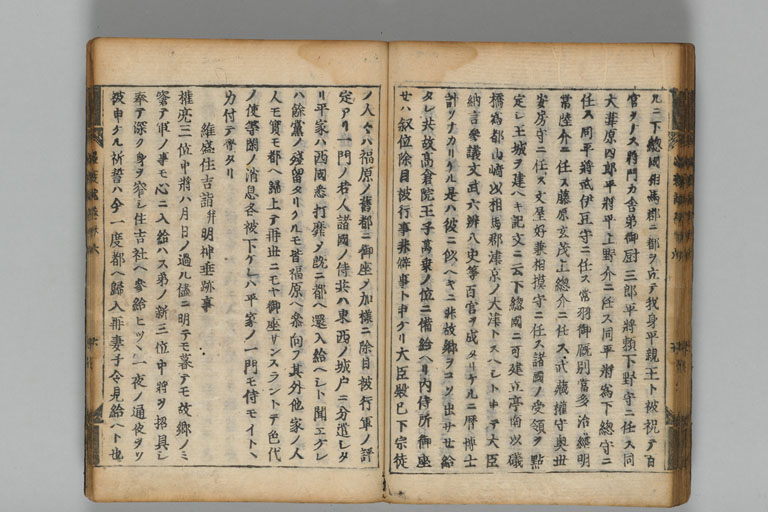 ル二下總國相馬郡ニ都ヲ立テ我身平親王ト被祝テ百
官ヲナス將門カ舎弟御厨三郎平將頼下野守ニ任ス同
大葦原四郎平將平上野介ニ任ス同平將為下總守ニ
任ス同平將武伊豆守ニ任ス常羽御厩別當多治經明
常陸介ニ任ス藤原玄茂上總介ニ任ス武藏權守奥世
安房守ニ任ス文屋好兼相摸守ニ任ス諸國ノ受領ヲ點
定シ王城ヲ建ヘキ記文ニ云下總國ニ可建立亭南以礒
橋為都山崎以相馬郡津京ノ大津トスヘシト申テ大臣
納言參議文武六辨八史等百官ヲ成タリケルニ暦博士
計ソナカリケル是ハ彼ニ似ヘキニ非故郷ヲコソ出サセ給
タレ共故高倉院王子萬乗ノ位ニ備給ヘリ内侍所御座
セハ叙位除目被行事非僻事ト申ケリ大臣殿已下宗徒
ノ人々ハ福原ノ舊都ニ御座ケル加様ニ除目被行軍ノ評
定アリ一門ノ君人諸國ノ侍共ハ東西ノ城戸ニ分遣レタ
リ平家ハ西國悉打靡メ既ニ都ヘ還入給ヘシト聞エケレ
ハ餘黨ノ殘留タリケルモ皆福原ヘ參向フ其外他家ノ人
人モ實モ都ヘ歸上テ再世ニモヤ御座サンスラントテ色代
ノ使等閑ノ消息各被下ケレハ平家ノ一門モ侍モイトヽ
力付テ タリ
維盛住吉詣并明神垂跡事
權亮三位中將ハ月日ノ過ル儘ニ明テモ暮テモ故郷ノミ
テ軍ノ事モ心ニ入給ハス弟ノ新三位中將ヲ招具シ
奉テ深ク身ヲ窄シ住吉社ヘ參給ヒツヽ一夜ノ通夜ヲソ
被申ケル祈誓ハ今一度都ヘ歸入再妻子令見給ヘト也